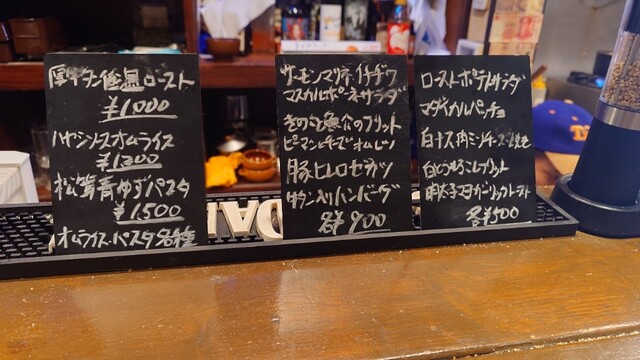 厚切タン低温ロースト
¥1,000
ハヤシソースオムライス
¥1,300
松茸青ゆずパスタ
¥1,500
オムライス・パスタ各種
サーモンマリネイチヂク
マスカルポーネサラダ
きのこと魚介のフリット
ピーマンとチーズオムレツ
豚ヒレロゼカツ
牛タン入りハンバーグ
各¥900
ローストポテトサラダ
マダイカルパッチョ
白ナス肉ミンチチーズ焼き
白とうもろこしフリット
明太子マヨガーリックトースト
各¥500